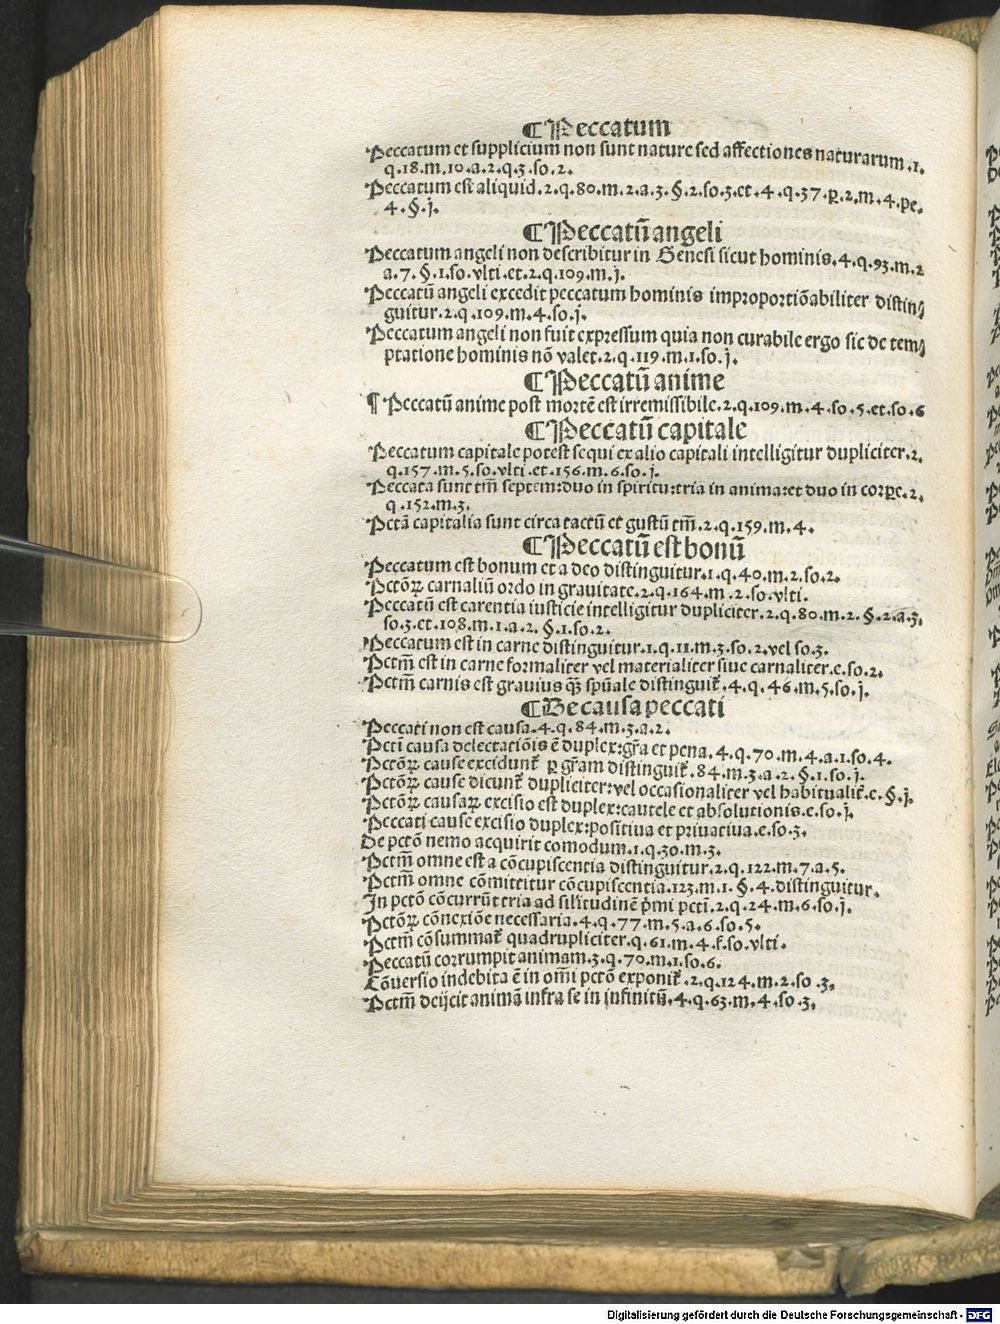 ¶Peccatum
Peccatum et supplicium non sunt nature sed affectiones naturarum.1.
q.18.m.10.a.2.q.3.so.2.
Peccatum est aliquid.2.q.80.m.2.a.3.§.2.so.3.et.4.q.37.p̱.2.m.4.pe.
4.§.j.
¶Peccatū angeli
Peccatum angeli non describitur in Genesi sicut hominis.4.q.93.m.2
a.7.§.1.so.vlti.et.2.q.109.m.j.
Peccatū angeli excedit peccatum hominis improportiōabiliter distin⸗
guitur.2.q.109.m.4.so.j.
Peccatum angeli non fuit expressum quia non curabile ergo sic de tem⸗
ptatione hominis nō valet.2.q.119.m.1.so.j.
¶Peccatū anime
¶ Peccatū anime post mortē est irremissibile.2.q.109.m.4.so.5.et.so.6
¶Peccatū capitale
Peccatum capitale potest sequi ex alio capitali intelligitur dupliciter.2.
q.157.m.5.so.vlti.et.156.m.6.so.j.
Peccata sunt tm̄ septem:duo in spiritu:tria in anima:et duo in corpe.2.
q.152.m.3.
Pctā capitalia sunt circa tactū et gustū tm̄.2.q.159.m.4.
¶Peccatū est bonū
Peccatum est bonum et a deo distinguitur.1.q.40.m.2.so.2.
Pctōꝝ carnaliū ordo in grauitate.2.q.164.m.2.so.vlti.
Peccatū est carentia iusticie intelligitur dupliciter.2.q.80.m.2.§.2.a.3.
so.3.et.108.m.1.a.2.§.1.so.2.
Peccatum est in carne distinguitur.1.q.11.m.3.so.2.vel so.3.
Pctm̄ est in carne formaliter vel materialiter siue carnaliter.e.so.2.
Pctm̄ carnis est grauius qꝫ spūale distinguit᷑.4.q.46.m.5.so.j.
¶De causa peccati
Peccati non est causa.4.q.84.m.3.a.2.
Pctī causa delectatiōis ē duplex:gr̄a et pena.4.q.70.m.4.a.1.so.4.
Pctōꝝ cause excidunt᷑ ꝑ gr̄am distinguit᷑.84.m.3.a.2.§.1.so.j.
Pctōꝝ cause dicunt᷑ dupliciter:vel occasionaliter vel habitualit᷑.e.§.j.
Pctōꝝ causaꝝ excisio est duplex:cautele et absolutionis.e.so.j.
Peccati cause excisio duplex:positiua et priuatiua.e.so.3.
De pctō nemo acquirit comodum.1.q.30.m.3.
Pctm̄ omne est a cōcupiscentia distinguitur.2.q.122.m.7.a.5.
Pctm̄ omne cōmittitur cōcupiscentia.123.m.1.§.4.distinguitur.
In pctō cōcurrūt tria ad silitudinē p̄mi pctī.2.q.24.m.6.so.j.
Pctōꝝ cōnexiōe necessaria.4.q.77.m.5.a.6.so.5.
Pctm̄ cōsummat᷑ quadrupliciter.q.61.m.4.f.so.vlti.
Peccatū corrumpit animam.3.q.70.m.1.so.6.
Cōuersio indebita ē in om̄i pctō exponit᷑.2.q.124.m.2.so.3.
Pctm̄ deijcit animā infra se in infinitū.4.q.63.m.4.so.3.
Digitalisierung gefördert durch die Deutsche Forschungsgemeinschaft - DFG